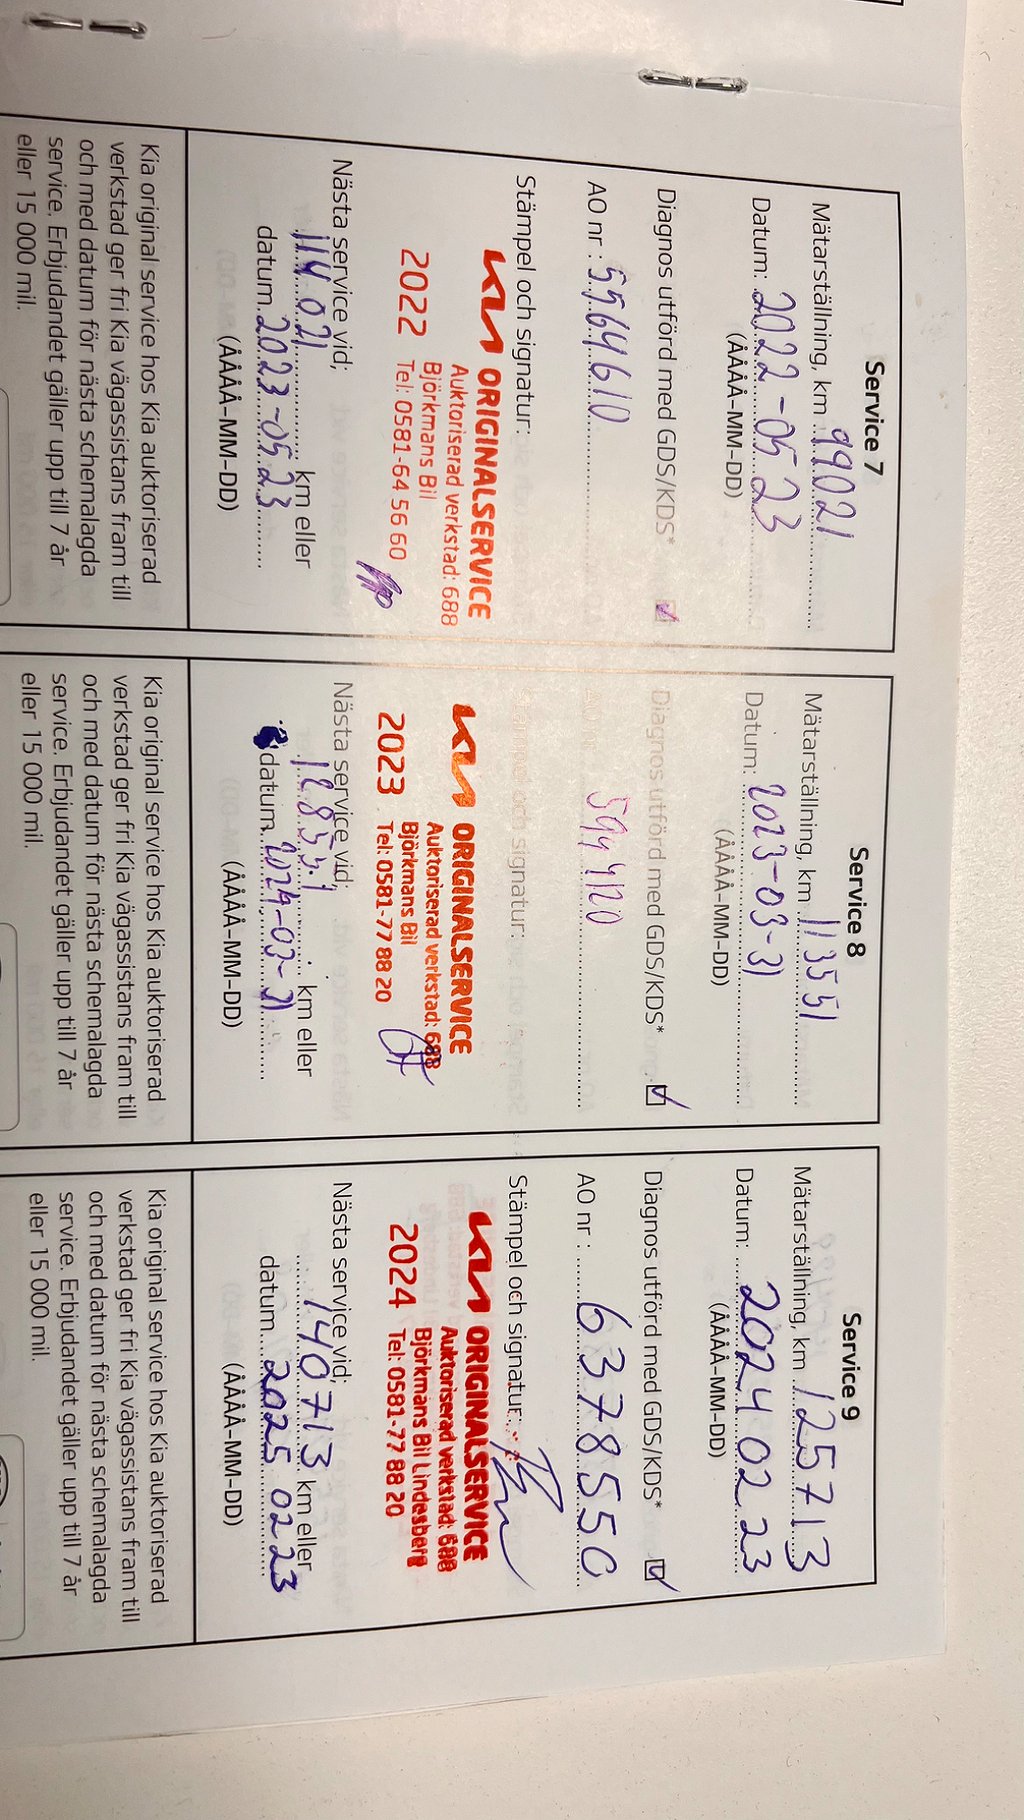 Service 7
Mätarställning, km 99021
Datum: 2022-05 23
(ÅÅÅÅ-MM-DD)
Diagnos utförd med GDS/KDS*
AO nr: 5564610
Stämpel och signatur:
KIA ORIGINALSERVICE
Auktoriserad verkstad: 688
2022 Björkmans Bil
Tel: 0581-64 56 60
Nästa service vid;
114 021 km eller
datum 2023-05 23
(ÅÅÅÅ-MM-DD)
Kia original service hos Kia auktoriserad
verkstad ger fri Kia vägassistans fram till
och med datum för nästa schemalagda
service. Erbjudandet gäller upp till 7 år
eller 15 000 mil.
Service 8
Mätarställning, km 113551
Datum: 2023-03-31
(ÅÅÅÅ-MM-DD)
Diagnos utförd med GDS/KDS*
AO nr 5944120
Stämpel och signatur:
KIA ORIGINALSERVICE
Auktoriserad verkstad: 688
2023 Björkmans Bil
Tel: 0581-77 88 20
Nästa service vid;
128551 km eller
datum 2024-03-31
(ÅÅÅÅ-MM-DD)
Kia original service hos Kia auktoriserad
verkstad ger fri Kia vägassistans fram till
och med datum för nästa schemalagda
service. Erbjudandet gäller upp till 7 år
eller 15 000 mil.
Service 9
Mätarställning, km 125713
Datum: 2024 02 23
(ÅÅÅÅ-MM-DD)
Diagnos utförd med GDS/KDS*
AO nr: 6378550
Stämpel och signatur:
KIA ORIGINALSERVICE
Auktoriserad verkstad: 688
2024 Björkmans Bil Lindesberg
Tel: 0581-77 88 20
Nästa service vid;
140713 km eller
datum 2025 02 23
(ÅÅÅÅ-MM-DD)
Kia original service hos Kia auktoriserad
verkstad ger fri Kia vägassistans fram till
och med datum för nästa schemalagda
service. Erbjudandet gäller upp till 7 år
eller 15 000 mil.